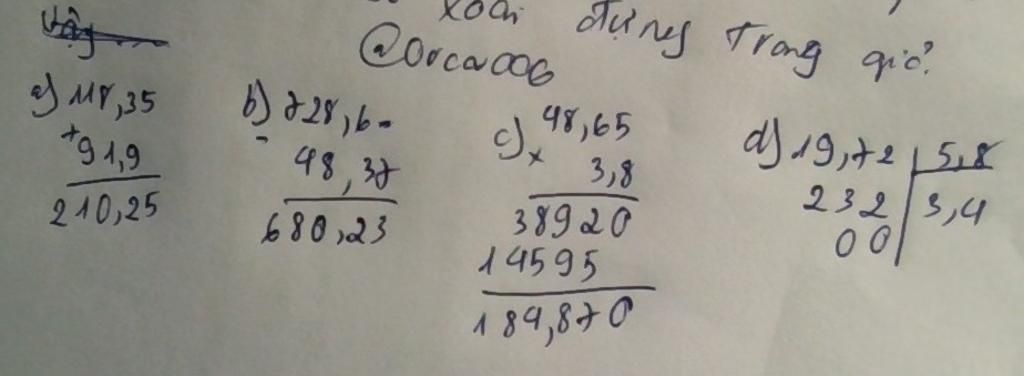 xoài đựng trong giỏ?
@Orca006
a) 118,35
+
91,9
210,25
b) 728,6-
-
48,37
680,23
c) 48,65
x
3,8
38920
14595
184,870
d) 19,72 | 5,8
232 | 3,4
00